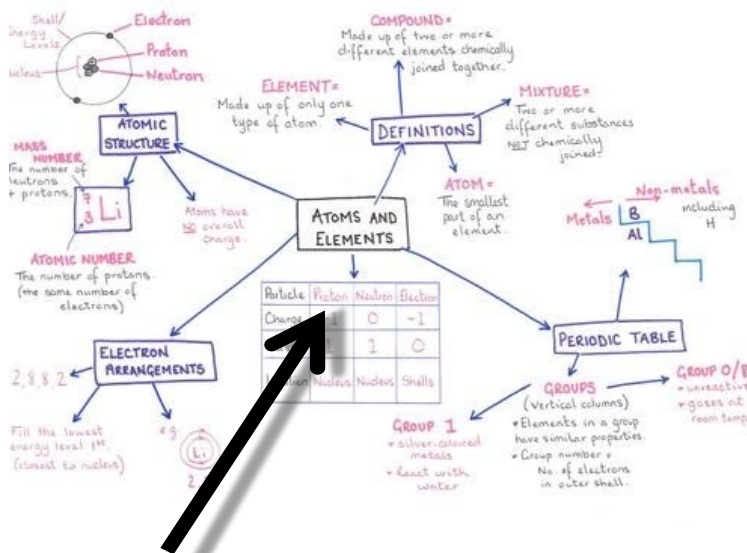 Shell/
Energy
Levels
Electron
Proton
Neutron
ATOMIC
STRUCTURE
MASS
NUMBER
The number of
neutrons
+ protons.
7
3 Li
ATOMIC NUMBER
The number of protons.
(the same number of
electrons)
Atoms have
NO overall
charge.
COMPOUND=
Made up of two or more
different elements chemically
joined together.
ELEMENT=
Made up of only one
type of atom.
DEFINITIONS
MIXTURE=
Two or more
different substances
NOT chemically
joined.
ATOM=
The smallest
part of an
element.
ATOMS AND
ELEMENTS
Non-metals
including
H
Metals
B
Al
Particle Proton Neutron Electron
Charge 0 -1
1 0
Nucleus Nucleus Shells
PERIODIC TABLE
ELECTRON
ARRANGEMENTS
2,8,8,2
Fill the lowest
energy level 1st.
(closest to nucleus)
eg
Li
2,
GROUPS
(vertical columns)
• Elements in a group
have similar properties.
• Group number =
No. of electrons
in outer shell.
GROUP 1
• silver-coloured
metals
• React with
water
GROUP 0/8
• unreactive
• gases at
room temp